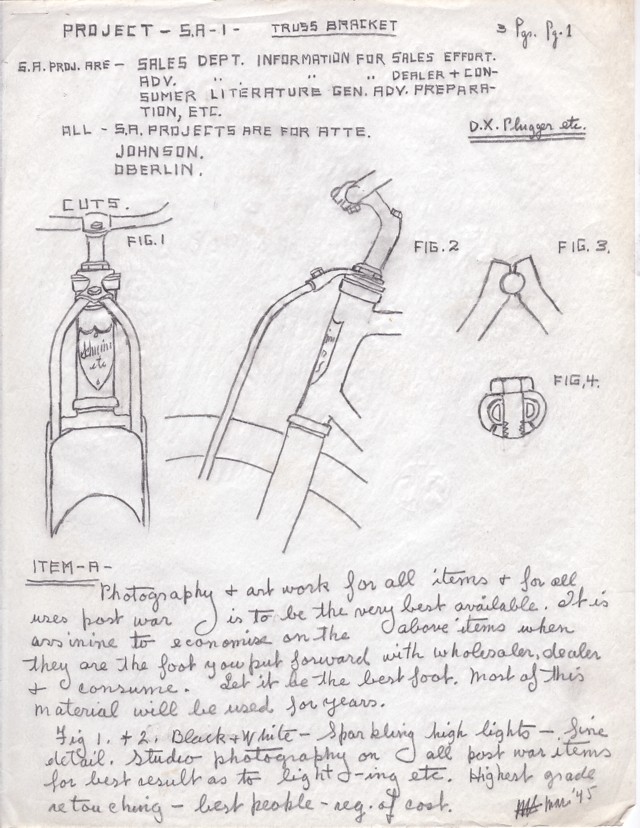 PROJECT - S.A-1- TRUSS BRACKET 3 Pgs. Pg.1
S.A. PROJ. ARE - SALES DEPT. INFORMATION FOR SALES EFFORT.
ADV. " " " DEALER + CON-
SUMER LITERATURE GEN. ADV. PREPARA-
TION, ETC.
ALL - S.A. PROJECTS ARE FOR ATTE.
JOHNSON.
OBERLIN.
D.X. Plugger etc.
CUTS.
FIG.1
FIG.2
FIG.3.
FIG,4.
etc
ITEM-A-
Photography + art work for all items + for all
uses post war is to be the very best available. It is
assinine to economise on the above items when
they are the foot you put forward with wholesaler, dealer
+ consume. Let it be the best foot. Most of this
material will be used for years.
Fig 1. + 2. Black + White - Sparkling high lights - fine
detail. Studio photography on all post war items
for best result as to light-ing etc. Highest grade
retouching - best people - reg. of cost.
'45